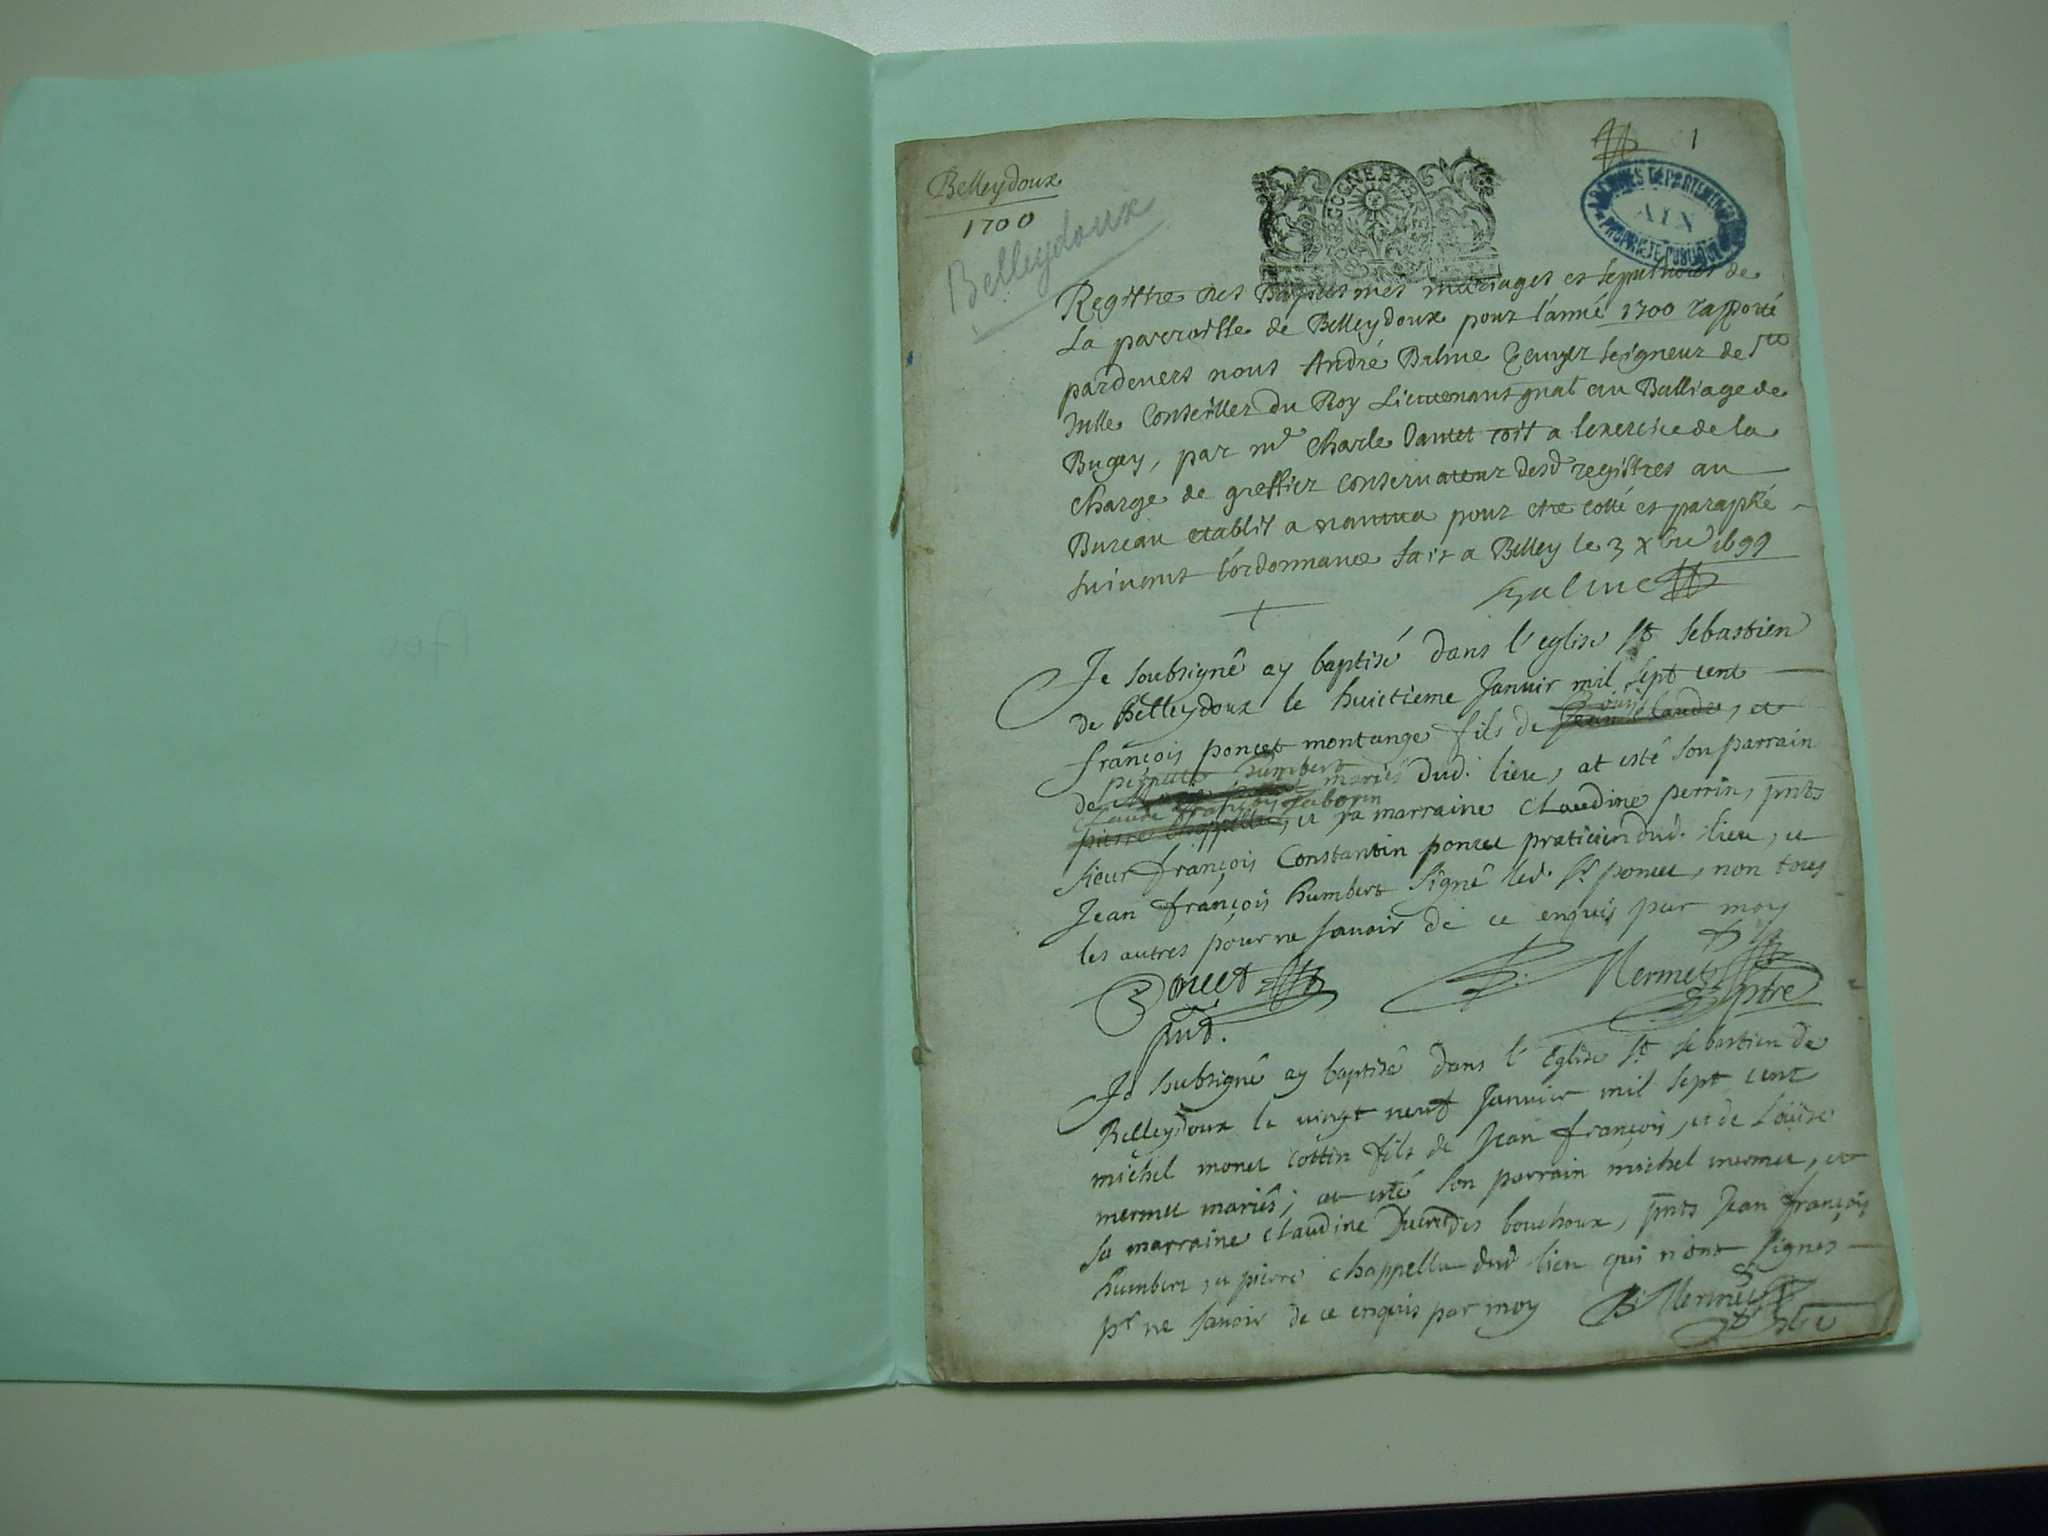 1
ARCHIVES DEPARTEMENTALES
AIN
PROPRIETE PUBLIQUE
Belleydoux
1700
Belleydoux
Registre des Baptesmes mariages et sepultures de
La parroisse de Belleydoux pour l'année 1700 rapporté
pardevers nous André Balme Escuyer seigneur de Ste
Julle Conseiller du Roy Lieutenant gnal au Balliage de
Bugey, par me Charle comis a lexercice de la
charge de greffier conservateur desd registres au
Bureau etablit a nantua pour etre cotté et paraphé
suivant l'ordonnance fait a Belley le 3 xbre 1699
Balme
Je soubsigné ay baptisé dans l'eglise St Sebastien
de Belleydoux le huictieme Janvir mil sept cent
françois poncet montange fils de et
pernette humbert
de mariés dud. lieu, at esté son parrain
Claude françois
pierre chappellu, et sa marraine Claudine perrin, pnts
sieur françois Constantin poncet praticien dud. lieu, et
Jean françois humbert signé led. sr poncet, non tous
les autres pour ne savoir de ce enquis par moy
Poncet Mermet ptre
pnt.
Je subsigné ay baptisé dans l'Eglise St sebastien de
Belleydoux le vingt neuf Janvier mil sept cent
michel monet cottin fils de Jean françois, et de Loüise
mermet mariés; at esté son parrain michel mermet, et
sa marraine claudine des bouchoux, pnts Jean françois
humbert, et pierre chappellu dud lieu qui n'ont signes
pr ne savoir de ce enquis par moy B Mermet
ptre